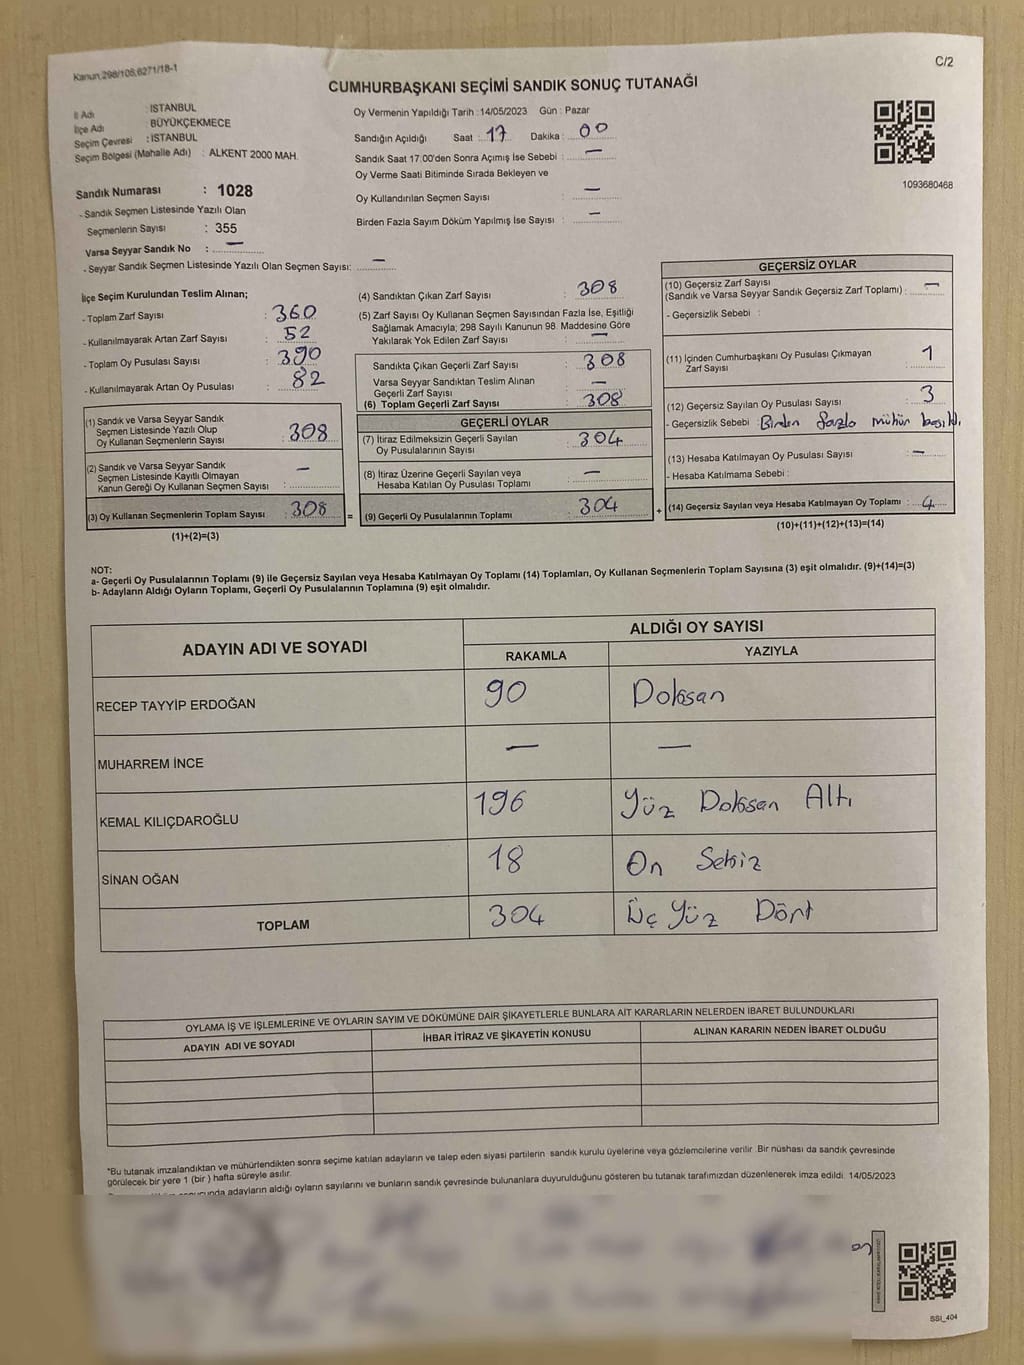 Kanun,298/105,6271/18-1
C/2
CUMHURBAŞKANI SEÇİMİ SANDIK SONUÇ TUTANAĞI
İl Adı : İSTANBUL
İlçe Adı : BÜYÜKÇEKMECE
Seçim Çevresi : İSTANBUL
Seçim Bölgesi (Mahalle Adı) : ALKENT 2000 MAH.
Sandık Numarası : 1028
- Sandık Seçmen Listesinde Yazılı Olan
Seçmenlerin Sayısı : 355
Varsa Seyyar Sandık No : —
- Seyyar Sandık Seçmen Listesinde Yazılı Olan Seçmen Sayısı: —
Oy Vermenin Yapıldığı Tarih : 14/05/2023 Gün : Pazar
Sandığın Açıldığı Saat : 17 Dakika : 00
Sandık Saat 17.00'den Sonra Açımış İse Sebebi : —
Oy Verme Saati Bitiminde Sırada Bekleyen ve
Oy Kullandırılan Seçmen Sayısı : —
Birden Fazla Sayım Döküm Yapılmış İse Sayısı : —
1093680468
İlçe Seçim Kurulundan Teslim Alınan;
- Toplam Zarf Sayısı : 360
- Kullanılmayarak Artan Zarf Sayısı : 52
- Toplam Oy Pusulası Sayısı : 390
- Kullanılmayarak Artan Oy Pusulası : 82
(1) Sandık ve Varsa Seyyar Sandık
Seçmen Listesinde Yazılı Olup
Oy Kullanan Seçmenlerin Sayısı : 308
(2) Sandık ve Varsa Seyyar Sandık
Seçmen Listesinde Kayıtlı Olmayan
Kanun Gereği Oy Kullanan Seçmen Sayısı : —
(3) Oy Kullanan Seçmenlerin Toplam Sayısı : 308 =
(1)+(2)=(3)
(4) Sandıktan Çıkan Zarf Sayısı : 308
(5) Zarf Sayısı Oy Kullanan Seçmen Sayısından Fazla İse, Eşitliği
Sağlamak Amacıyla; 298 Sayılı Kanunun 98. Maddesine Göre
Yakılarak Yok Edilen Zarf Sayısı : —
Sandıkta Çıkan Geçerli Zarf Sayısı : 308
Varsa Seyyar Sandıktan Teslim Alınan
Geçerli Zarf Sayısı : —
(6) Toplam Geçerli Zarf Sayısı : 308
GEÇERLİ OYLAR
(7) İtiraz Edilmeksizin Geçerli Sayılan
Oy Pusulasının Sayısı : 304
(8) İtiraz Üzerine Geçerli Sayılan veya
Hesaba Katılan Oy Pusulası Toplamı : —
(9) Geçerli Oy Pusulalarının Toplamı : 304 +
GEÇERSİZ OYLAR
(10) Geçersiz Zarf Sayısı
(Sandık ve Varsa Seyyar Sandık Geçersiz Zarf Toplamı) : —
- Geçersizlik Sebebi :
(11) İçinden Cumhurbaşkanı Oy Pusulası Çıkmayan
Zarf Sayısı : 1
(12) Geçersiz Sayılan Oy Pusulası Sayısı : 3
- Geçersizlik Sebebi : Birden fazla mühür basıldı.
(13) Hesaba Katılmayan Oy Pusulası Sayısı : —
- Hesaba Katılmama Sebebi :
(14) Geçersiz Sayılan veya Hesaba Katılmayan Oy Toplamı : 4
(10)+(11)+(12)+(13)=(14)
NOT:
a- Geçerli Oy Pusulalarının Toplamı (9) ile Geçersiz Sayılan veya Hesaba Katılmayan Oy Toplamı (14) Toplamları, Oy Kullanan Seçmenlerin Toplam Sayısına (3) eşit olmalıdır. (9)+(14)=(3)
b- Adayların Aldığı Oyların Toplamı, Geçerli Oy Pusulalarının Toplamına (9) eşit olmalıdır.
ADAYIN ADI VE SOYADI
ALDIĞI OY SAYISI
RAKAMLA YAZIYLA
RECEP TAYYİP ERDOĞAN 90 Doksan
MUHARREM İNCE — —
KEMAL KILIÇDAROĞLU 196 Yüz Doksan Altı
SİNAN OĞAN 18 On Sekiz
TOPLAM 304 Üç Yüz Dört
OYLAMA İŞ VE İŞLEMLERİNE VE OYLARIN SAYIM VE DÖKÜMÜNE DAİR ŞİKAYETLERLE BUNLARA AİT KARARLARIN NELERDEN İBARET BULUNDUKLARI
ADAYIN ADI VE SOYADI İHBAR İTİRAZ VE ŞİKAYETİN KONUSU ALINAN KARARIN NEDEN İBARET OLDUĞU
*Bu tutanak imzalandıktan ve mühürlendikten sonra seçime katılan adayların ve talep eden siyasi partilerin sandık kurulu üyelerine veya gözlemcilerine verilir. Bir nüshası da sandık çevresinde
görülecek bir yere 1 (bir ) hafta süreyle asılır.
adayların aldığı oyların sayılarını ve bunların sandık çevresinde bulunanlara duyurulduğunu gösteren bu tutanak tarafımızdan düzenlenerek imza edildi. 14/05/2023
SSI_404